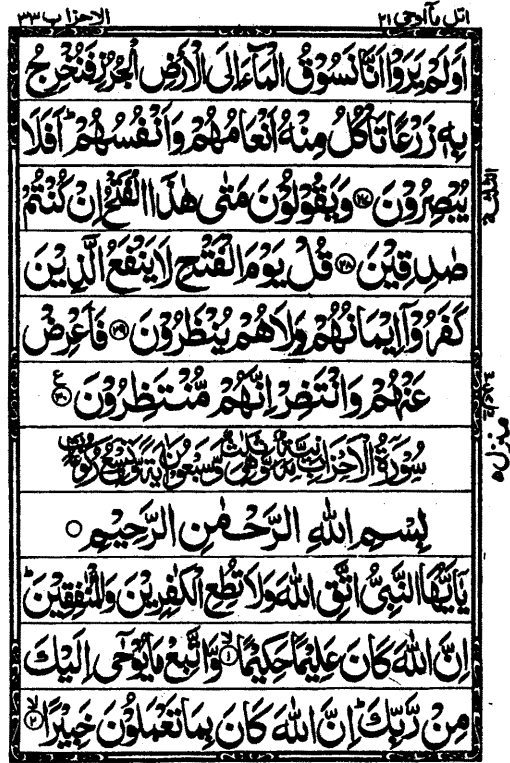 اتل ماآ اوحی ۲۱
الاحزاب ۳۳
اَوَلَمْ يَرَوْا اَنَّا نَسُوْقُ الْمَآءَ اِلَى الْاَرْضِ الْجُرُزِ فَنُخْرِجُ
بِهٖ زَرْعًا تَاْكُلُ مِنْهُ اَنْعَامُهُمْ وَاَنْفُسُهُمْ ؕ اَفَلَا
يُبْصِرُوْنَ ﴿۲۷﴾ وَيَقُوْلُوْنَ مَتٰى هٰذَا الْفَتْحُ اِنْ كُنْتُمْ
صٰدِقِيْنَ ﴿۲۸﴾ قُلْ يَوْمَ الْفَتْحِ لَا يَنْفَعُ الَّذِيْنَ
كَفَرُوْٓا اِيْمَانُهُمْ وَلَا هُمْ يُنْظَرُوْنَ ﴿۲۹﴾ فَاَعْرِضْ
عَنْهُمْ وَانْتَظِرْ اِنَّهُمْ مُّنْتَظِرُوْنَ ﴿۳۰﴾ ع
سُوْرَةُ الْاَحْزَابِ مَدَنِيَّةٌ وَّهِيَ ثَلٰثٌ وَّسَبْعُوْنَ اٰيَةً وَّتِسْعُ رُكُوْعَاتٍ
بِسْمِ اللّٰهِ الرَّحْمٰنِ الرَّحِيْمِ ○
يٰٓاَيُّهَا النَّبِيُّ اتَّقِ اللّٰهَ وَلَا تُطِعِ الْكٰفِرِيْنَ وَالْمُنٰفِقِيْنَ ؕ
اِنَّ اللّٰهَ كَانَ عَلِيْمًا حَكِيْمًا ﴿۱﴾ۙ وَّاتَّبِعْ مَا يُوْحٰٓى اِلَيْكَ
مِنْ رَّبِّكَ ؕ اِنَّ اللّٰهَ كَانَ بِمَا تَعْمَلُوْنَ خَبِيْرًا ﴿۲﴾ۙ
الثلثة
منزل ۵